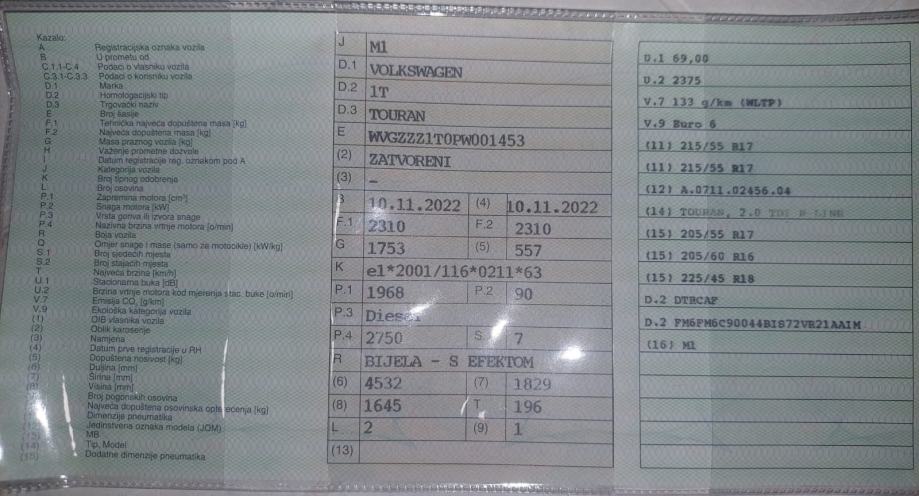 Kazalo:
A Registracijska oznaka vozila
B U prometu od
C.1.1-C.4 Podaci o vlasniku vozila
C.3.1-C.3.3 Podaci o korisniku vozila
D.1 Marka
D.2 Homologacijski tip
D.3 Trgovački naziv
E Broj šasije
F.1 Tehnička najveća dopuštena masa [kg]
F.2 Najveća dopuštena masa [kg]
G Masa praznog vozila [kg]
H Važenje prometne dozvole
I Datum registracije reg. oznakom pod A
J Kategorija vozila
K Broj tipnog odobrenje
L Broj osovina
P.1 Zapremina motora [cm³]
P.2 Snaga motora [kW]
P.3 Vrsta goriva ili izvora snage
P.4 Nazivna brzina vrtnje motora [o/min]
R Boja vozila
Q Omjer snage i mase (samo za motocikle) [kW/kg]
S.1 Broj sjedećih mjesta
S.2 Broj stajaćih mjesta
T Najveća brzina [km/h]
U.1 Stacionarna buka [dB]
U.2 Brzina vrtnje motora kod mjerenja stac. buke [o/min]
V.7 Emisija CO₂ [g/km]
V.9 Ekološka kategorija vozila
(1) OIB vlasnika vozila
(2) Oblik karoserije
(3) Namjena
(4) Datum prve registracije u RH
(5) Dopuštena nosivost [kg]
(6) Duljina [mm]
(7) Širina [mm]
(8) Visina [mm]
Broj pogonskih osovina
Najveća dopuštena osovinska opterećenja [kg]
Dimenzije pneumatika
Jedinstvena oznaka modela (JOM)
MB
(14) Tip, Model
(15) Dodatne dimenzije pneumatika
J M1
D.1 VOLKSWAGEN
D.2 1T
D.3 TOURAN
E WVGZZZ1T0PW001453
(2) ZATVORENI
(3) –
B 10.11.2022 (4) 10.11.2022
F.1 2310 F.2 2310
G 1753 (5) 557
K e1*2001/116*0211*63
P.1 1968 P.2 90
P.3 Diesel
P.4 2750 S 7
R BIJELA - S EFEKTOM
(6) 4532 (7) 1829
(8) 1645 T 196
L 2 (9) 1
(13)
D.1 69,00
D.2 2375
V.7 133 g/km (WLTP)
V.9 Euro 6
(11) 215/55 R17
(11) 215/55 R17
(12) A.0711.02456.04
(14) TOURAN, 2.0 TDI
(15) 205/55 R17
(15) 205/60 R16
(15) 225/45 R18
D.2 DTRCAF
D.2 FM6FM6C90044BIS72VR21AAIM
(16) M1